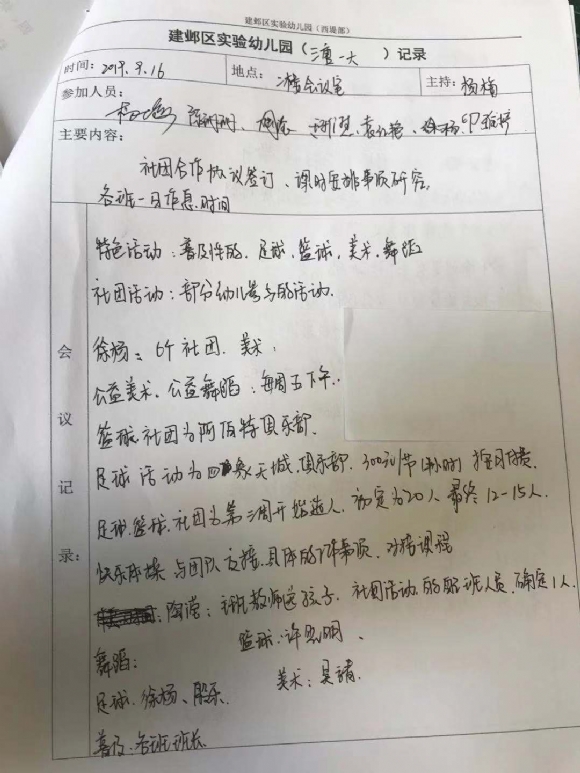 建邺区实验幼儿园（西堤部）
建邺区实验幼儿园（三重一大）记录
时间：2019.9.16 地点：二楼会议室 主持：杨楠
参加人员：
徐杨、
主要内容：
社团合作协议签订、课时安排事项研究。
各班一日作息时间
会议记录：
特色活动：普及性的，足球，篮球，美术，舞蹈
社团活动：部分幼儿参与的活动。
徐杨：6个社团．美术：
公益美术．公益舞蹈：每周五下午..
篮球社团为阿伯特俱乐部．
足球活动为 天城．俱乐部．300元/节 按月付费．
足球 篮球．社团为第二周开始选人．初定为20人 最终12-15人．
快乐体操 与团队交接．具体的 事项．对接课程
：陶莹：主班教师送孩子．社团活动的 班人员．确定1人．
舞蹈： 篮球：许 明、
足球．徐杨、殷乐． 美术：吴靖．
普及．各班班长